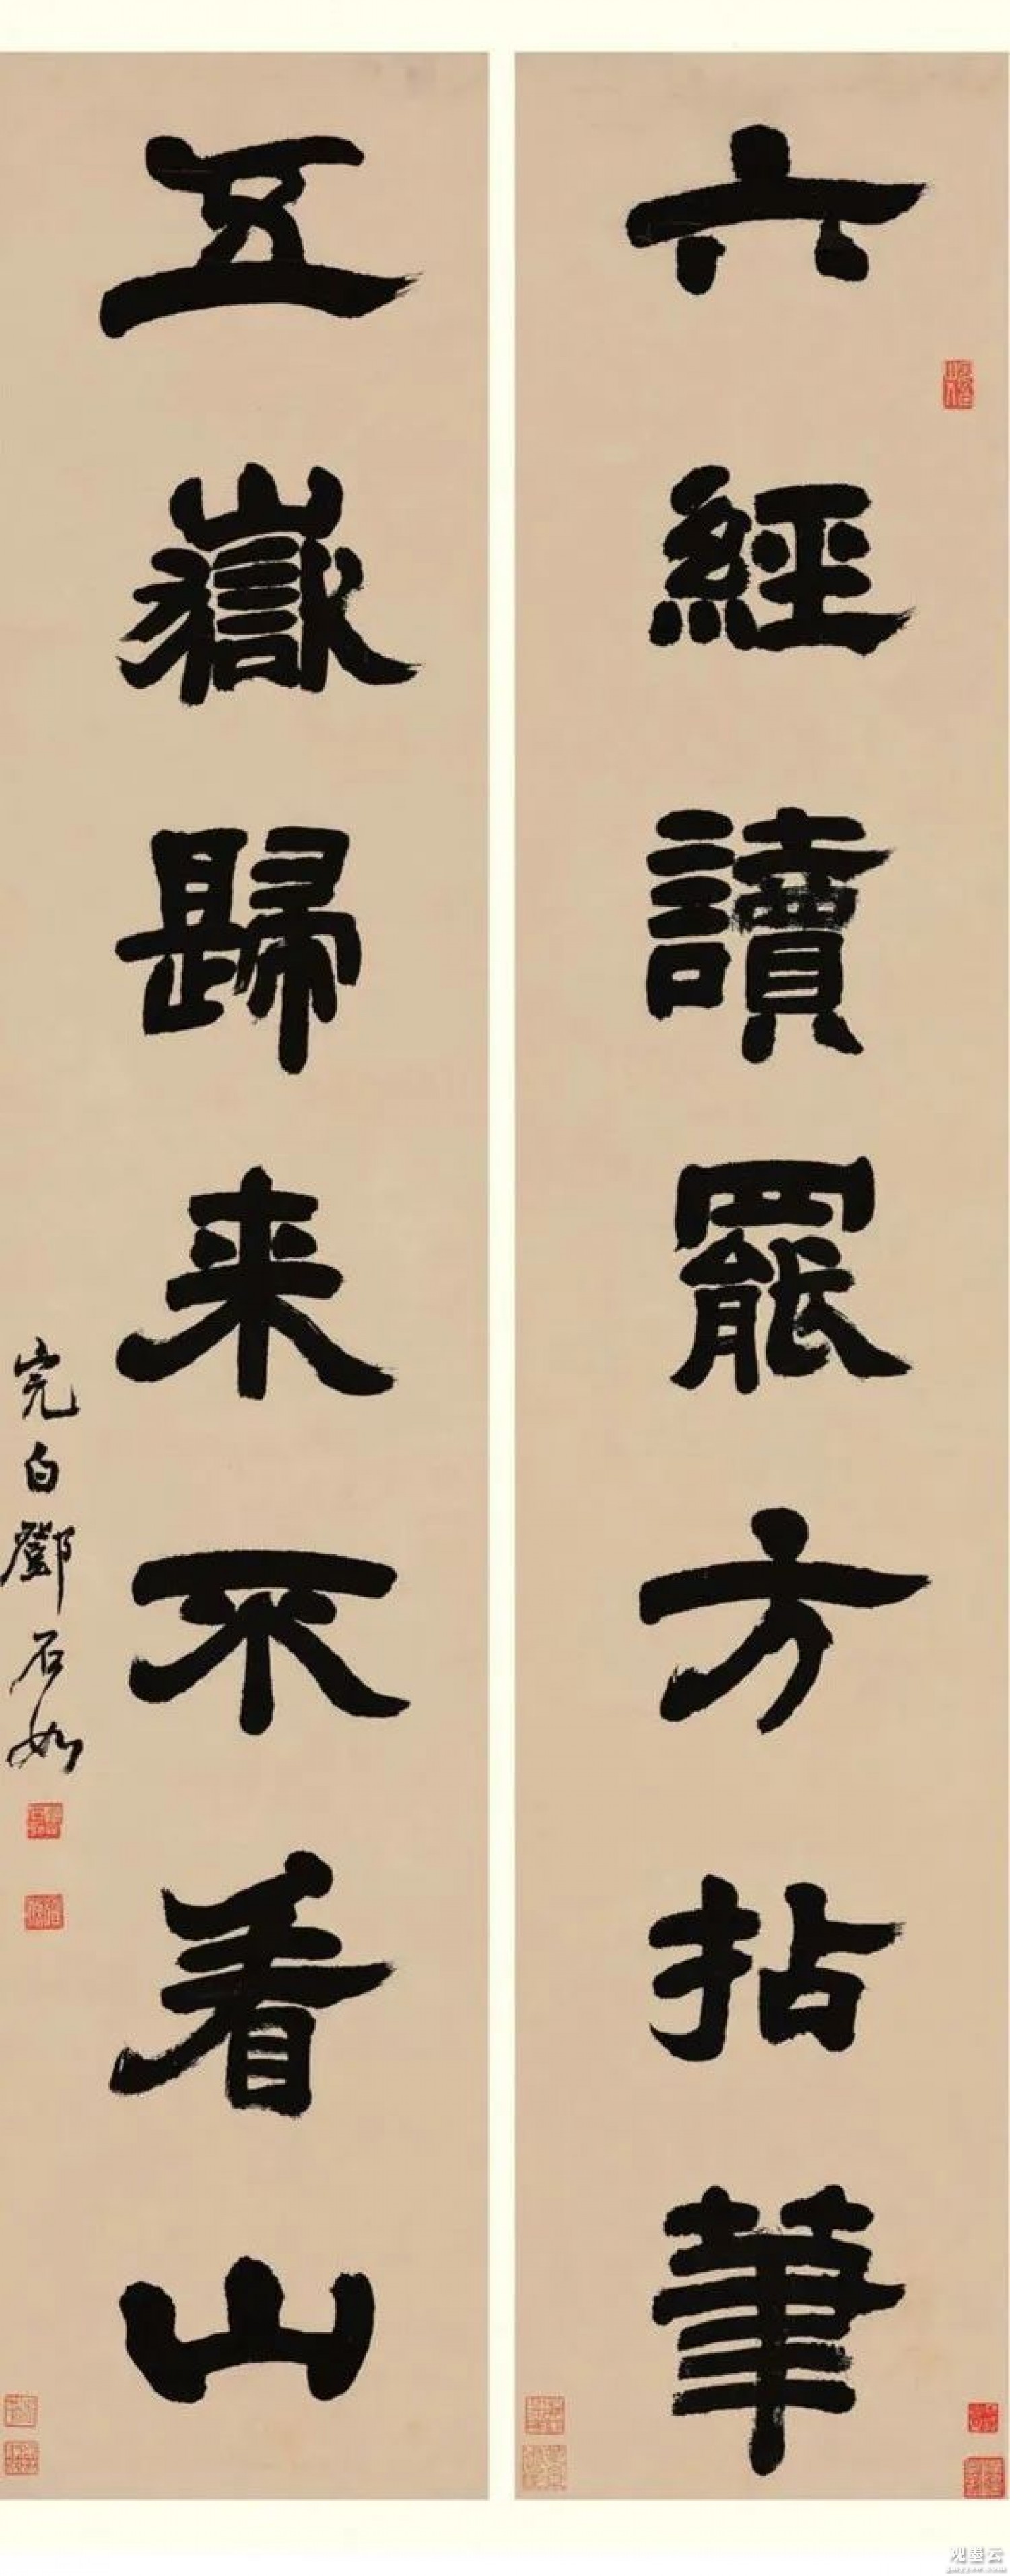 六經讀罷方拈筆
五嶽歸来不看山
完白鄧石如
观墨云